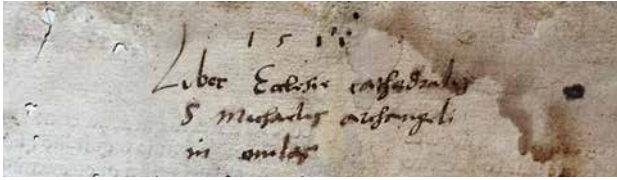 151
Liber Ecclesie cathedralis
S Michaelis archangeli
in